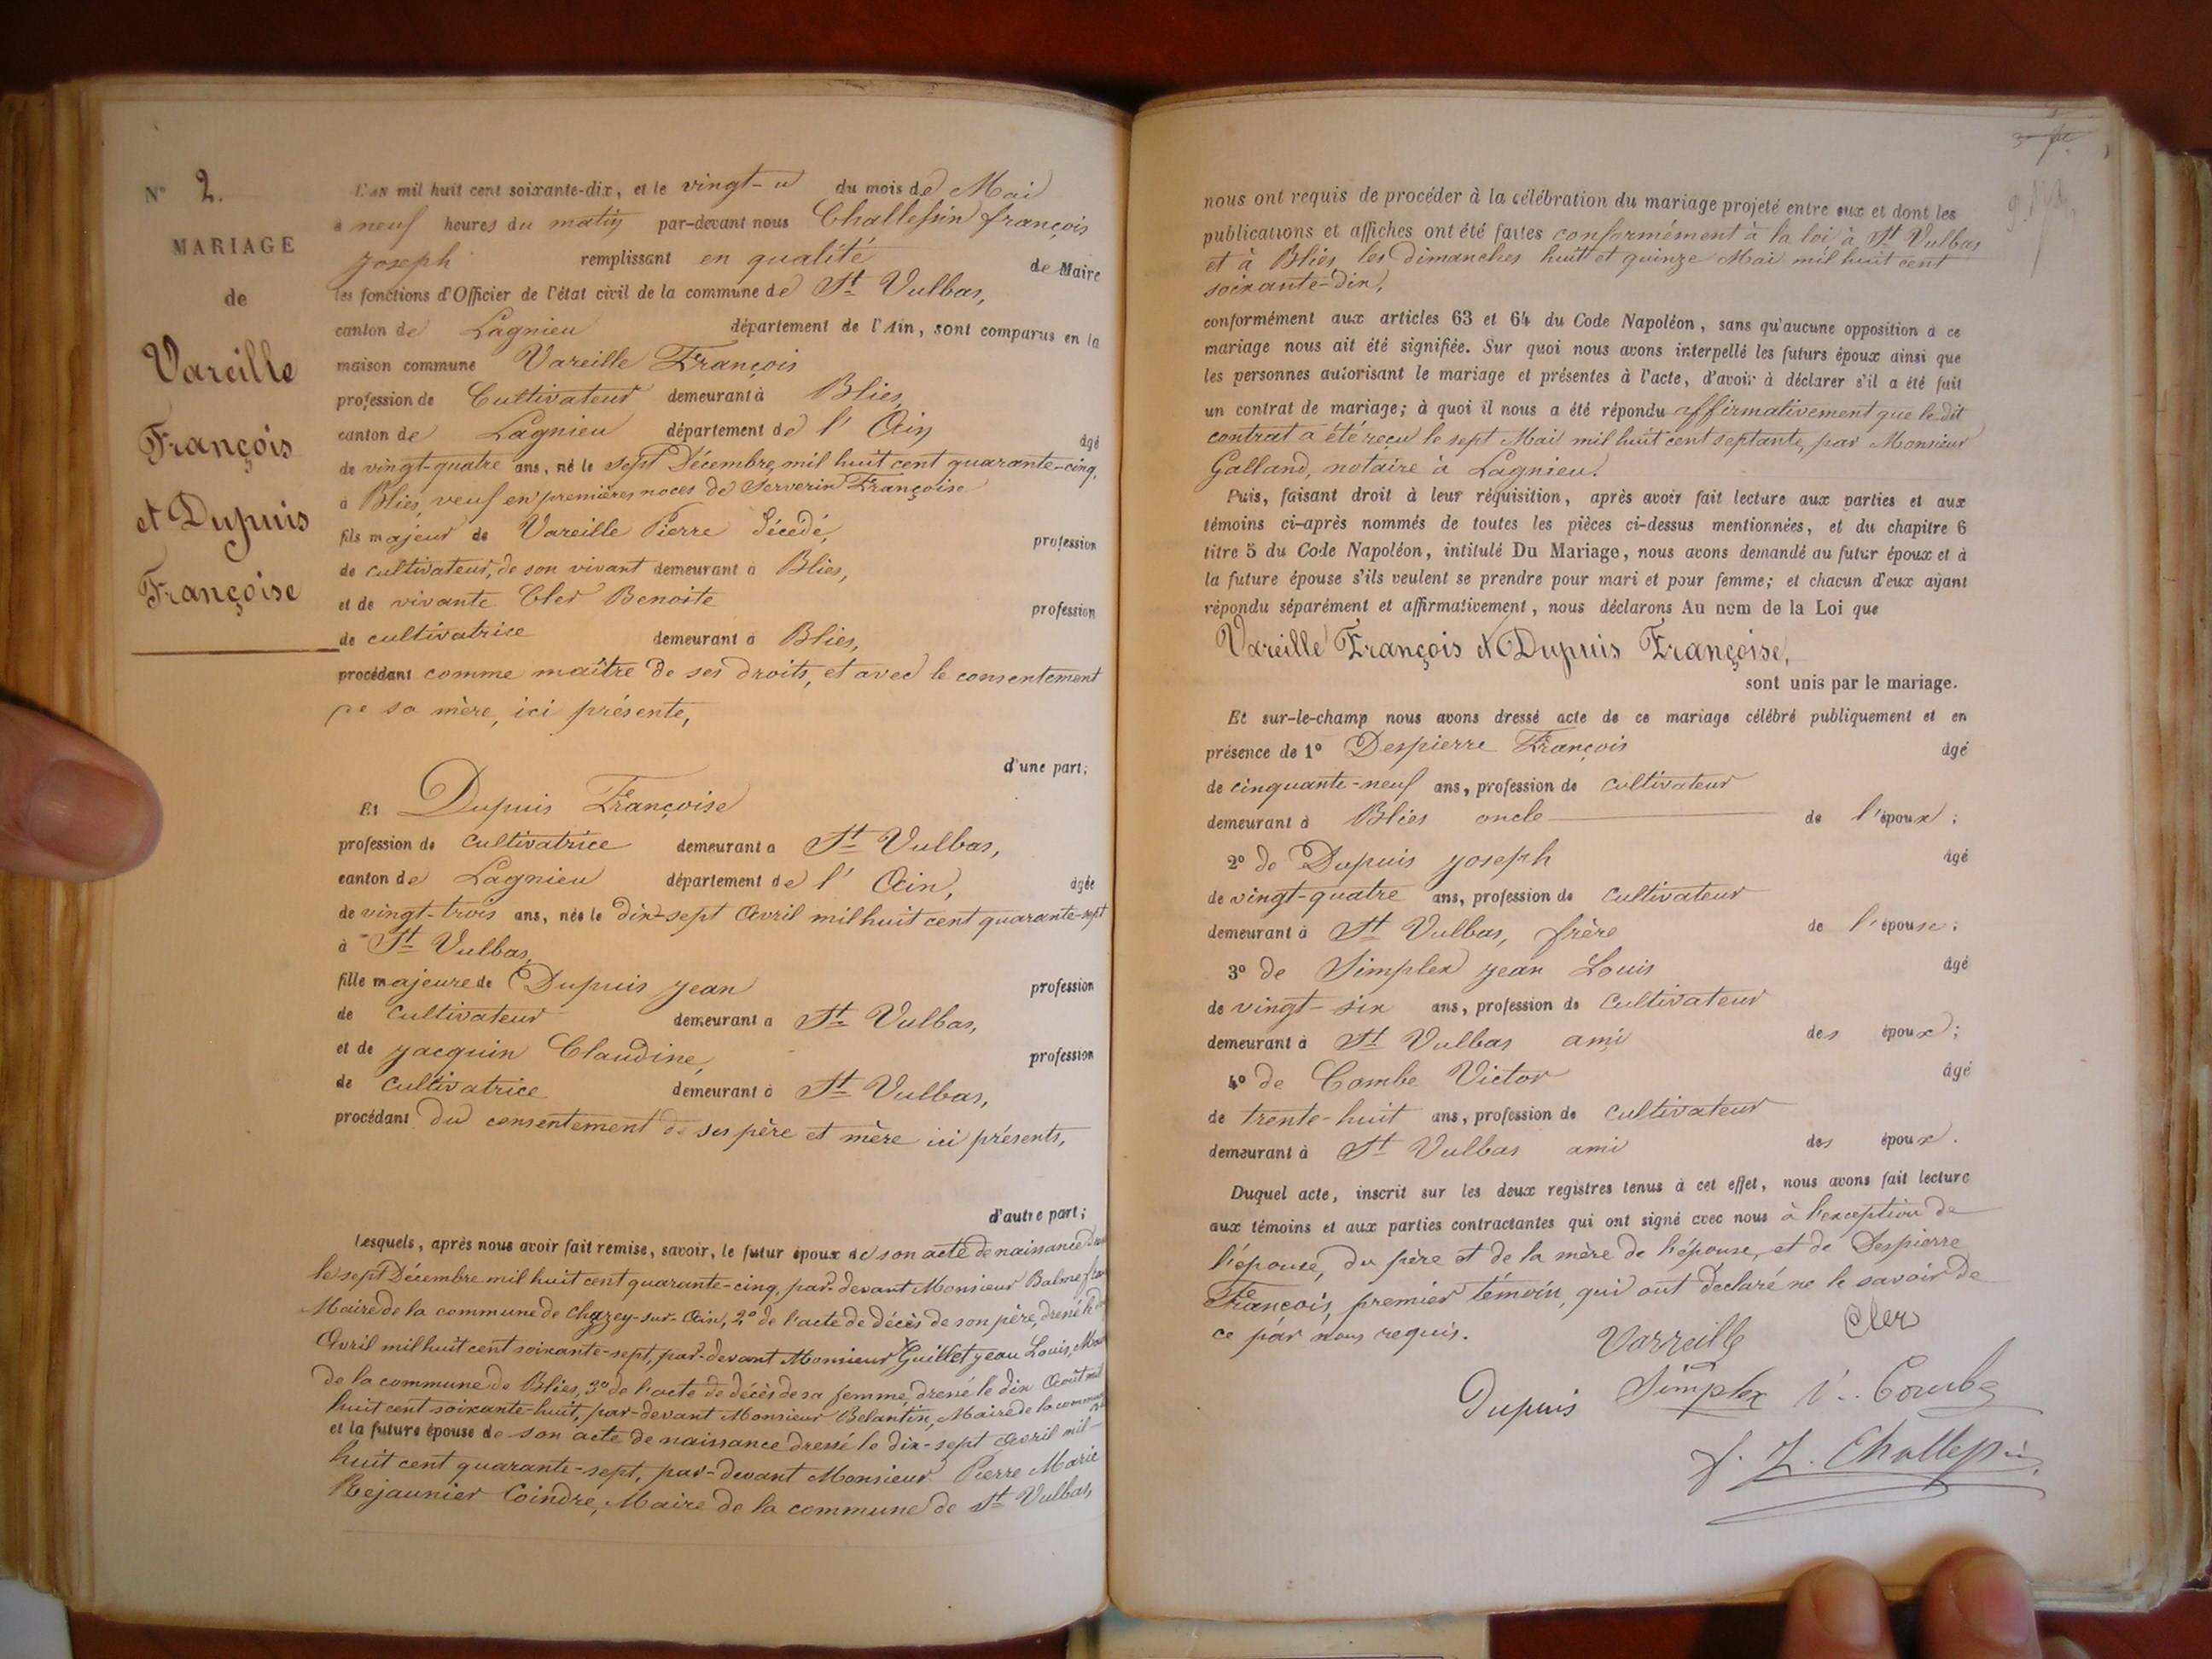 N° 2.
MARIAGE
de
Vareille
François
et Dupuis
Françoise
L'AN mil huit cent soixante-dix, et le vingt- du mois de Mai
à neuf heures du matin par-devant nous Challessin françois
joseph remplissant en qualité de Maire
les fonctions d'Officier de l'état civil de la commune de St Vulbas,
canton de Lagnieu département de l'Ain, sont comparus en la
maison commune Vareille François
profession de Cultivateur demeurant à Blies,
canton de Lagnieu département de l'Ain âgé
de vingt-quatre ans, né le sept Décembre mil huit cent quarante-cinq,
à Blies, veuf en premières noces de Serverin Françoise
fils majeur de Vareille Pierre Décédé, profession
de cultivateur, de son vivant demeurant à Blies,
et de vivante Cler Benoite profession
de cultivatrice demeurant à Blies,
procédant comme maître de ses droits, et avec le consentement
de sa mère, ici présente,
d'une part;
Et Dupuis Françoise
profession de cultivatrice demeurant à St Vulbas,
canton de Lagnieu département de l'Ain, âgée
de vingt-trois ans, née le dix-sept Avril mil huit cent quarante-sept
à St Vulbas,
fille majeure de Dupuis jean profession
de cultivateur demeurant à St Vulbas,
et de jacquin Claudine, profession
de cultivatrice demeurant à St Vulbas,
procédant du consentement de ses père et mère ici présents,
d'autre part;
Lesquels, après nous avoir fait remise, savoir, le futur époux de son acte de naissance
le sept Décembre mil huit cent quarante-cinq, par-devant Monsieur Balme
Maire de la commune de Chazey-sur-Ain, 2° de l'acte de décès de son père, dressé le
Avril mil huit cent soixante-sept, par-devant Monsieur Guillet jean Louis,
de la commune de Blies, 3° de l'acte de décès de sa femme, dressé le dix Août mil
huit cent soixante-huit, par-devant Monsieur Belantin, Maire de la commune
et la future épouse de son acte de naissance dressé le dix-sept Avril mil
huit cent quarante-sept, par-devant Monsieur Pierre Marie
Rejaunier Coindre, Maire de la commune de St Vulbas,
nous ont requis de procéder à la célébration du mariage projeté entre eux et dont les
publications et affiches ont été faites conformément à la loi à St Vulbas
et à Blies, les dimanches huit et quinze Mai mil huit cent
soixante-dix,
conformément aux articles 63 et 64 du Code Napoléon, sans qu'aucune opposition à ce
mariage nous ait été signifiée. Sur quoi nous avons interpellé les futurs époux ainsi que
les personnes autorisant le mariage et présentes à l'acte, d'avoir à déclarer s'il a été fait
un contrat de mariage; à quoi il nous a été répondu affirmativement que le dit
contrat a été reçu le sept Mai mil huit cent septante, par Monsieur
Galland, notaire à Lagnieu.
Puis, faisant droit à leur réquisition, après avoir fait lecture aux parties et aux
témoins ci-après nommés de toutes les pièces ci-dessus mentionnées, et du chapitre 6
titre 5 du Code Napoléon, intitulé Du Mariage, nous avons demandé au futur époux et à
la future épouse s'ils veulent se prendre pour mari et pour femme; et chacun d'eux ayant
répondu séparément et affirmativement, nous déclarons Au nom de la Loi que
Vareille François et Dupuis Françoise,
sont unis par le mariage.
Et sur-le-champ nous avons dressé acte de ce mariage célébré publiquement et en
présence de 1° Despierre François âgé
de cinquante-neuf ans, profession de cultivateur
demeurant à Blies oncle de l'époux;
2° de Dupuis joseph âgé
de vingt-quatre ans, profession de cultivateur
demeurant à St Vulbas, frère de l'épouse;
3° de Simplex jean Louis âgé
de vingt-six ans, profession de cultivateur
demeurant à St Vulbas ami des époux;
4° de Combe Victor âgé
de trente-huit ans, profession de cultivateur
demeurant à St Vulbas ami des époux.
Duquel acte, inscrit sur les deux registres tenus à cet effet, nous avons fait lecture
aux témoins et aux parties contractantes qui ont signé avec nous à l'exception de
l'épouse, du père et de la mère de l'épouse, et de Despierre
François, premier témoin, qui ont déclaré ne le savoir de
ce par nous requis.
Varreille Cler
Dupuis Simplex V. Combe
f. J. Challessin